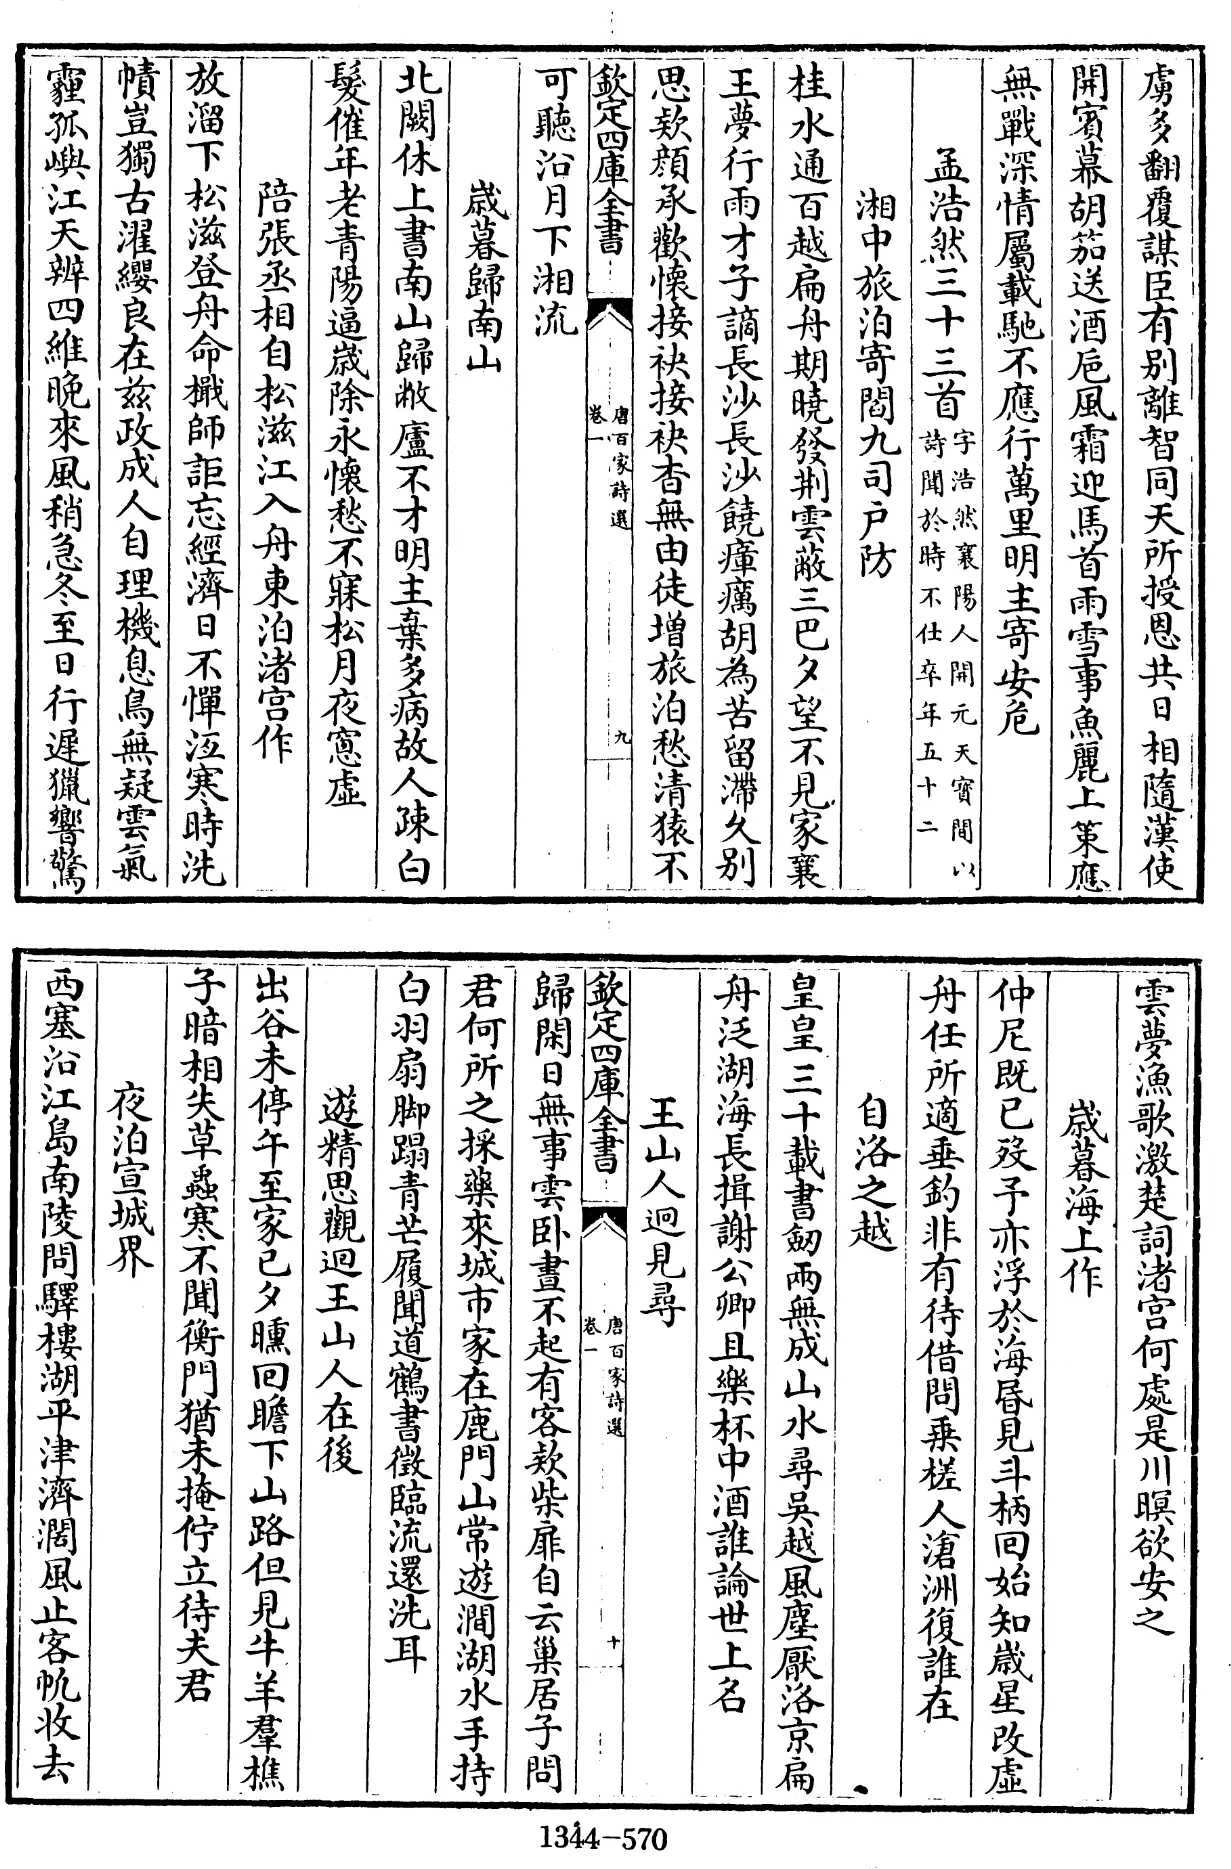 虜多翻覆謀臣有别離智同天所授恩共日相隨漢使
開賓幕胡笳送酒巵風霜迎馬首雨雪事魚麗上策應
無戰深情屬載馳不應行萬里明主寄安危
孟浩然三十三首字浩然襄陽人開元天寳間以
詩聞於時不仕卒年五十二
湘中旅泊寄閻九司户防
桂水通百越扁舟期曉發荆雲蔽三巴夕望不見家襄
王夢行雨才子謫長沙長沙饒瘴癘胡為苦留滯久别
思欵顔承歡懷接袂接袂杳無由徒増旅泊愁清猿不
欽定四庫全書
唐百家詩選
卷一
九
可聽沿月下湘流
歳暮歸南山
北闕休上書南山歸敝廬不才明主棄多病故人疎白
髮催年老青陽逼歳除永懷愁不寐松月夜窻虚
陪張丞相自松滋江入舟東泊渚宫作
放溜下松滋登舟命檝師詎忘經濟日不憚沍寒時洗
幘豈獨古濯纓良在兹政成人自理機息鳥無疑雲氣
霾孤嶼江天辨四維晚來風稍急冬至日行遲獵響驚
雲夢漁歌激楚詞渚宫何處是川暝欲安之
歳暮海上作
仲尼既已歿予亦浮於海昏見斗柄回始知歳星改虚
舟任所適垂釣非有待借問乗槎人滄洲復誰在
自洛之越
皇皇三十載書劒兩無成山水尋吳越風塵厭洛京扁
舟泛湖海長揖謝公卿且樂杯中酒誰論世上名
王山人迥見尋
欽定四庫全書
唐百家詩選
卷一
十
歸閑日無事雲卧晝不起有客欵柴扉自云巢居子問
君何所之採藥來城市家在鹿門山常遊澗湖水手持
白羽扇脚蹋青芒履聞道鶴書徵臨流還洗耳
遊精思觀迴王山人在後
出谷未停午至家已夕曛回瞻下山路但見牛羊羣樵
子暗相失草蟲寒不聞衡門猶未掩佇立待夫君
夜泊宣城界
西塞沿江島南陵問驛樓湖平津濟濶風止客帆收去
1344-570